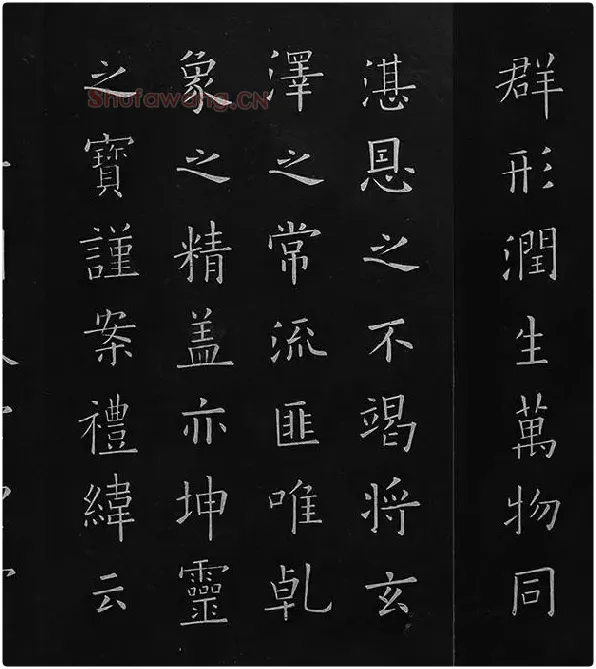 群形潤生萬物同
湛恩之不竭将玄
澤之常流匪唯乹
象之精盖亦坤靈
之寶謹案禮緯云
Shufawang.CN